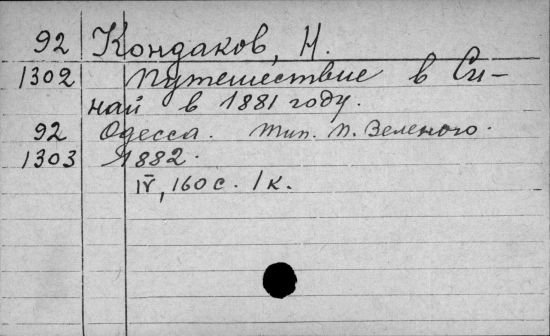 92 Кондаков, Н.
1302 Путешествие в Си-
най в 1881 году.
92 Одесса. Тип. П. Зеленого.
1303 1882.
IV, 160 с. 1 к.